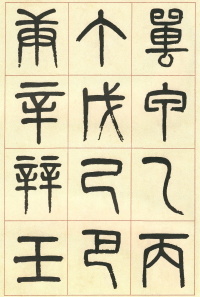 嘼甲乙丙
丁戊己巴
庚辛辡壬